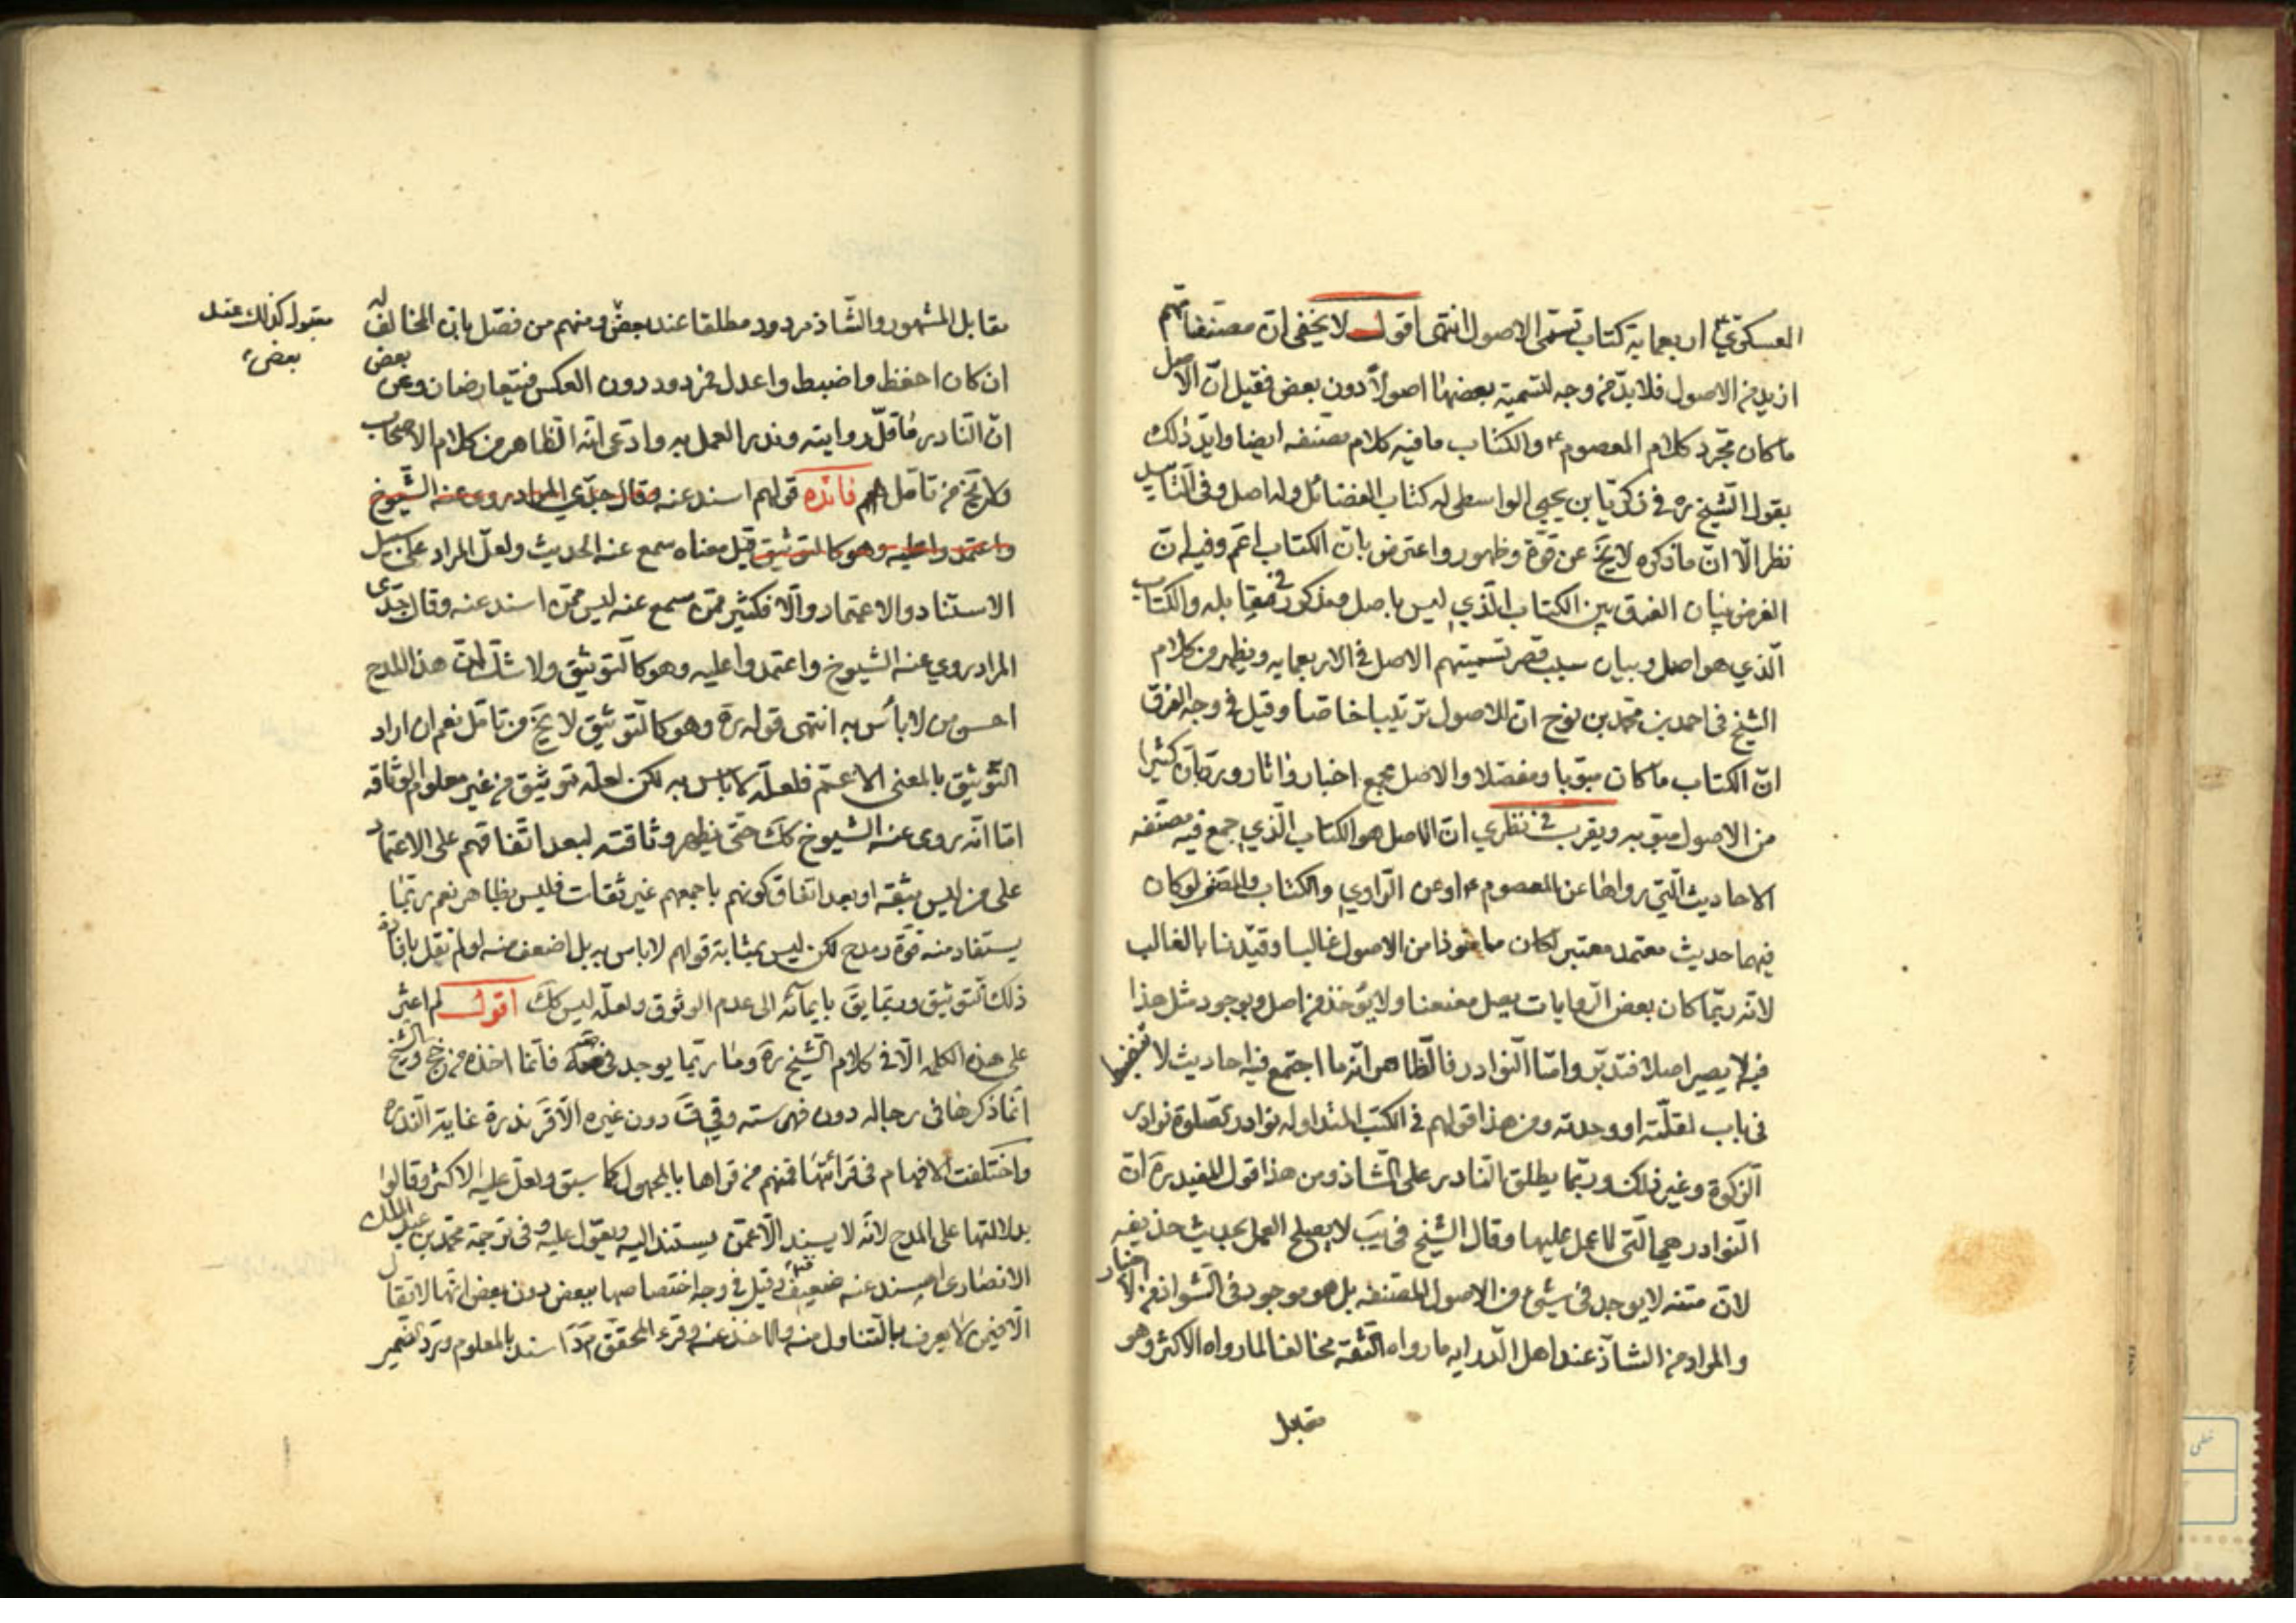 العسكري ع اربعماية كتاب تسمى الاصول انتهى اقول لا يخفى ان مصنفاتهم
ازيد من الاصول فلا بد من وجه لتسمية بعضها اصولا دون بعض فقيل ان الاصل
ما كان مجرد كلام المعصوم ع والكتاب ما فيه كلام مصنفه ايضا وايد ذلك
بقول الشيخ ره في زكريا بن يحيى الواسطي له كتاب الفضائل وله اصل وفي التاييد
نظر الا ان ما ذكره لا يخ عن قوة وظهور واعترض بان الكتاب اعم وفيه ان
الغرض بيان الفرق بين الكتاب الذي ليس باصل ومذكور في مقابله والكتاب
الذي هو اصل وبيان سبب قصر تسميتهم الاصل في الاربعمايه ويظهر من كلام
الشيخ في احمد بن محمد بن نوح ان للاصول ترتيبا خاصا وقيل في وجه الفرق
ان الكتاب ما كان مبوبا ومفصلا والاصل مجمع اخبار واثار ورد بان كثيرا
من الاصول مبوبه ويقرب في نظري ان الاصل هو الكتاب الذي جمع فيه مصنفه
الاحاديث التي رواها عن المعصوم ع او عن الراوي والكتاب والمصنف لو كان
فيهما حديث معتمد معتبر لكان ماخوذا من الاصول غالبا وقيدنا بالغالب
لانه ربما كان بعض الروايات يصل معنعنا ولا يؤخذ من اصل وبوجود مثل هذا
فيه لا يصير اصلا فتدبر واما النوادر فالظاهر انه ما اجتمع فيه احاديث لا تنضبط
في باب لقلته او وحدته ومن هذا قولهم في الكتب المتداوله نوادر الصلوة نوادر
الزكوة وغير ذلك وربما يطلق النادر على الشاذ ومن هذا قول المفيد ره ان
النوادر هي التي لا عمل عليها وقال الشيخ في يب لا يصلح العمل بحديث حذيفه
لان متنه لا يوجد في شيء من الاصول المصنفه بل هو موجود في الشواذ من الاخبار
والمراد من الشاذ عند اهل الدرايه ما رواه الثقه مخالفا لما رواه الاكثر وهو
مقابل
مقابل المشهور والشاذ مردود مطلقا عند بعض ومنهم من فصل بان المخالف له
مقبول كذلك عند
بعض
ان كان احفظ واضبط واعدل فمردود دون العكس فيتعارضان وعن بعض
ان النادر ما قل روايته وندر العمل به وادعى انه الظاهر من كلام الاصحاب
ولا يخ من تامل فائده قولهم اسند عنه وقال جدي المراد روى عنه الشيوخ
واعتمدوا عليه وهو كالتوثيق قيل معناه سمع عنه الحديث ولعل المراد على سبيل
الاستناد والاعتماد والا فكثير ممن سمع عنه ليس ممن اسند عنه وقال جدي
المراد روي عنه الشيوخ واعتمدوا عليه وهو كالتوثيق ولا شك ان هذا المدح
احسن من لا بأس به انتهى قوله ره وهو كالتوثيق لا يخ من تامل نعم ان اراد
التوثيق بالمعنى الاعم فلعله لا باس به لكن لعله توثيق من غير معلوم الوثاقه
اما انه روى عنه الشيوخ كك حتى يظهر وثاقته لبعد اتفاقهم على الاعتماد
على من ليس بثقه او بعد اتفاق كونهم باجمعهم غير ثقات فليس بظاهر نعم ربما
يستفاد منه قوة ومدح لكن ليس بمثابة قولهم لا باس به بل اضعف منه لو لم نقل بافادة
ذلك التوثيق وربما يق بايمائه الى عدم الوثوق ولعله ليس كك اقول لم اعثر
على هذه الكلمه الا في كلام الشيخ ره وما ربما يوجد في فانما اخذه من جخ والشيخ
انما ذكرها في رجاله دون فهرسته وفي ق دون غيره الا في ندرة غاية الندره
واختلفت الافهام في قرائتها فمنهم من قراها بالمجهول كما سبق ولعل عليه الاكثر وقالوا
بدلالتها على المدح لانه لا يسند الا عمن يستند اليه ويعول عليه وفي ترجمة محمد بن عبد الملك
الانصاري اسند عنه ضعيف قيل في وجه اختصاصها ببعض دون بعض انها لا تقال
الا فيمن لا يعرف بالتناول منه والاخذ عنه وقرء المحقق اسند بالمعلوم ورد الضمير